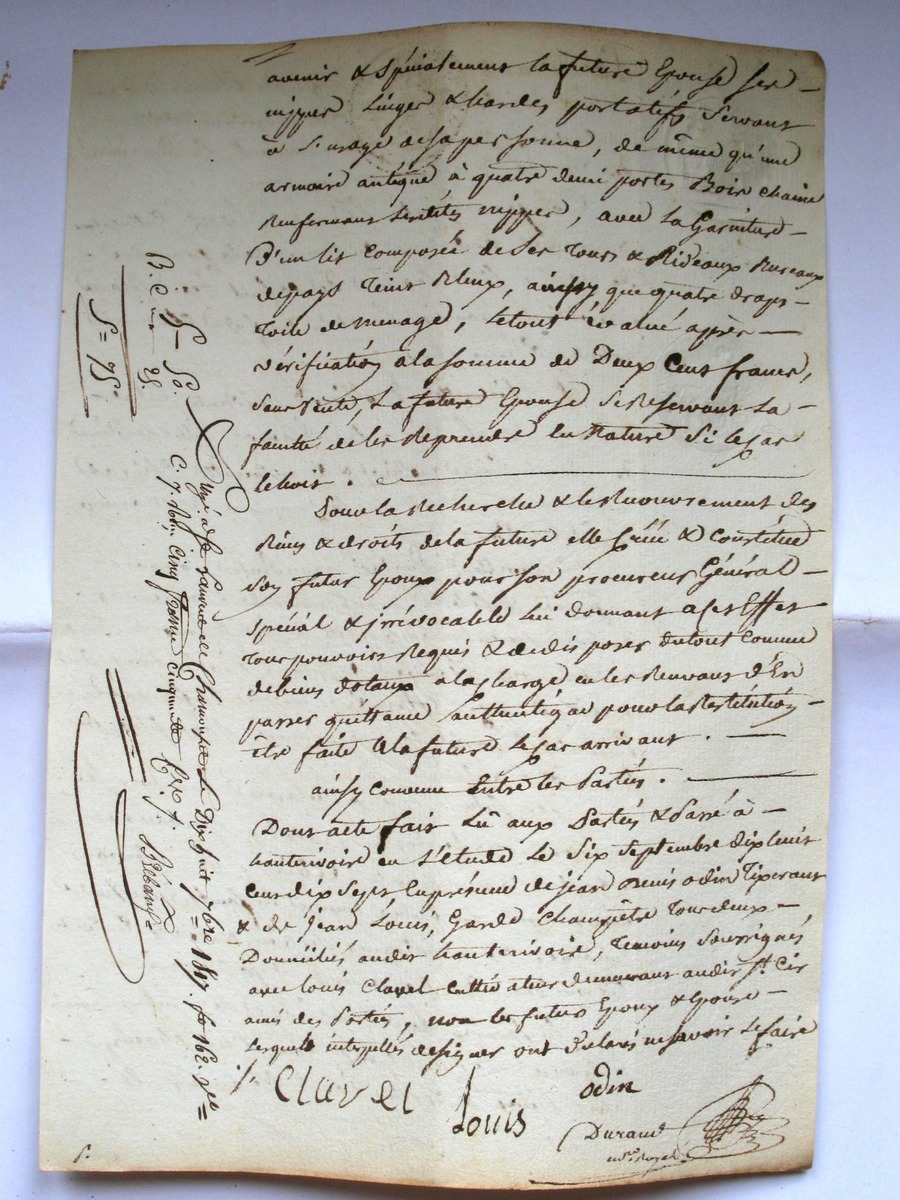 avenir & Spécialement la future Epouse ses
nippes Linges & hardes portatifs Servant
à L'usage de sa personne, de même qu'une
armoire antique à quatre demi portes Bois chaine
Renfermant lesdites nippes, avec La Garniture
D'un lit composée de Ses Tours & Rideaux Bureaux
de pays Teint Bleux, ainsy que quatre draps
Toile de menage, Le tout évalué après
vérification a la somme de Deux Cent francs,
Sans vente, La future Epouse se Reservant La
faculté de les Reprendre En Nature Si le cas
léchoit.
Pour la Recherche & le Recouvrement des
Biens & droits de la future elle Créé & Constitue
Son futur Epoux pour son procureur Général
Spécial & irrévocable Lui donnant a cet Effet
Tous pouvoirs Requis & de disposer du tout Comme
de biens dotaux a la charge en les Recevant d'En
passer quittance authentique pour la Restitution
être faite a la future le cas arrivant.
ainsy convenu Entre les Parties.
Dont acte fait Lû aux Parties & Passé à
hauterivoire En L'étude Le Six Septembre dix huit
cent dix Sept En présence de jean denis odin Tisserant
& de Jean Louis, Garde Champêtre Tous deux
Domiciliés audit hauterivoire, Temoins Soussignés
avec Louis Clavel Cultivateur demeurant audit St. Cir
amis des Parties, non les futurs Epoux & Epouse
Lesquels interpellés de signer ont déclaré ne savoir Le faire
Clavel
Louis
odin
Durand
not. Royal
5 = 50.
25.
5 = 75
à St Laurent de Chamousset Le Dix huit 7bre 1817. fo 162. vo
C. 7. Reçu Cinq francs Cinquante C.